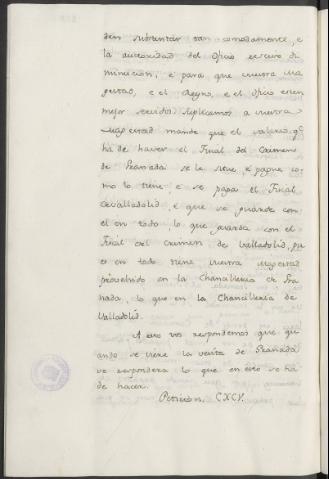 den sustentar tan comodamente, e
la autoridad del oficio recive di
minucion, e para que vuestra Ma
gestad, e el Reyno, e el oficio esten
mejor servidos suplicamos a vuestra
Magestad mande que el salario q.e
ha de haver el Fiscal del Crimen
de Granada se le tiene, e pague co
mo lo tiene e se paga el Fiscal
de Valladolid, e que se guarde con
el en todo lo que guarda con el
Fiscal del Crimen de Valladolid, pu
es en todo tiene vuestra Magestad
proveehido en la Chancilleria de Gra
nada, lo que en la Chancilleria de
Valladolid.
A esto vos respondemos que qu
ando se viere la visita de Granada
se respondera lo que en esto se há
de hacer.
Peticion. CXCV.